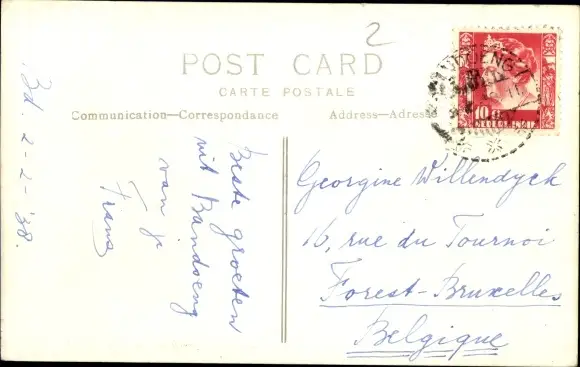 2
POST CARD
CARTE POSTALE
Communication—Correspondance
Address—Adresse
10 ct
NEDERL. INDIE
Bd. 2-2-'38.
Beste groeten
uit Bandoeng
van je
Frans
Georgine Willendyck
16, rue du Tournoi
Forest-Bruxelles
Belgique